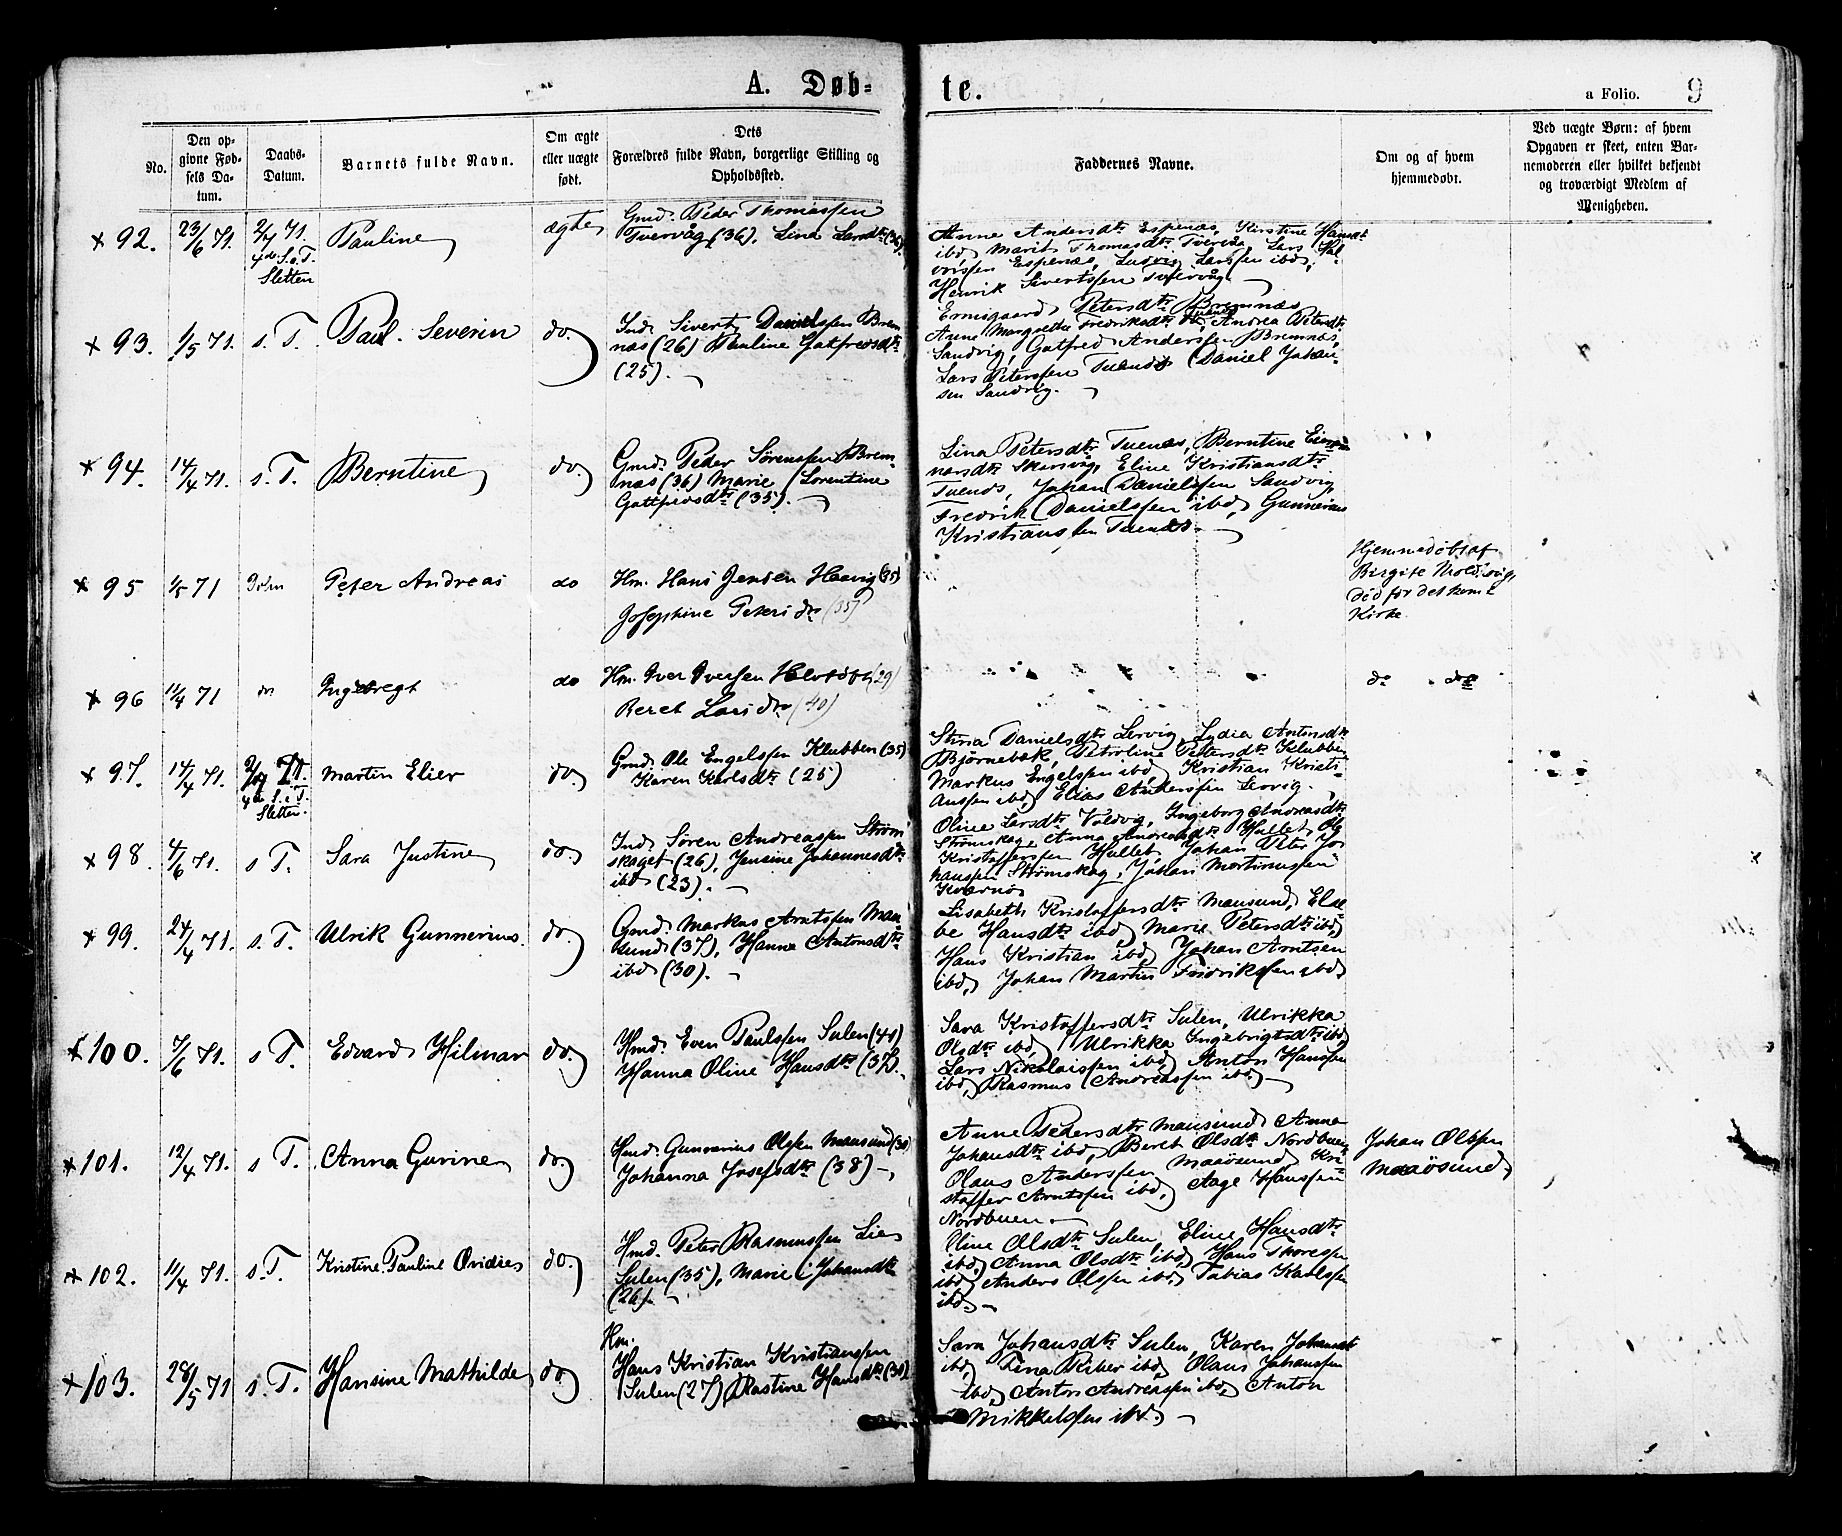 A. Døb=
te.
a Folio. 9
No.
Den op=
givne Fød=
sels Da=
tum.
Daabs=
Datum.
Barnets fulde Navn.
Om ægte
eller uægte
født.
Dets
Forældres fulde Navn, borgerlige Stilling og
Opholdssted.
Faddernes Navne.
Om og af hvem
hjemmedøbt.
Ved uægte Børn: af hvem
Opgaven er skeet, enten Bar=
nemoderen eller hvilket bekjendt
og troværdigt Medlem af
Menigheden.
× 92. 23/6 71. 2/7 71. Pauline ægte
4de S. e. T.
Sletten
Gmd. Peder Thomassen
Tvervåg (36), Lina Larsdtr (36)
Anne Andersdtr Espenæs, Kirstine Hansdtr
ibd, Marit Thomasdtr Tvervåg, Lars Hal-
vorssen Espenæs, Ludvig Larssen ibd,
Henrik Sivertssen Tvervåg
× 93. 1/5 71. s. T. Paul Severin do.
Ind. Sivert Danielssen Brem
næs (26) Pauline Gotfredsdtr
(25).
Ermigaard Petersdtr Bremnæs
Anne Margrethe Fredriksdtr ibd, Andrea Petersdtr
Sandvig, Gotfred Anderssen Bremnæs,
Lars Peterssen Tuenæs Daniel Johan-
sen Sandvig.
× 94. 14/4 71. s. T. Berntine do.
Gmd. Peder Sørenssen Brem-
næs (36) Marie Lorentine
Gotfredsdtr (35).
Lina Petersdtr Tuenæs, Berntine Ei-
narsdtr Skarsvåg, Eline Kristiansdtr
Tuenæs, Johan Danielssen Sandvig,
Fredrik Danielssen ibd, Gunnerius
Kristianssen Tuenæs.
× 95 1/5 71 Peter Andreas do
Hm. Hans Jensen Hervig (35)
Josephine Petersdtr (35)
Hjemmedøbt af
Birgite Moldvig,
død før det kom t
Kirke.
× 96 11/4 71 do Ingebregt do
Hm. Iver Iversen (29)
Beret Larsdtr (40)
do do
× 97. 14/4 71. 2/7 71. Martin Elier do.
4de S. e. T.
Sletten.
Gmd. Ole Engelssen Klubben (35)
Karen Karlsdtr (25)
Stina Danielsdtr Lervig, Lydia Antonsdtr
Bjørnebek, Petroline Petersdtr Klubben
Markus Engelssen ibd, Kristian Kristi-
anssen ibd, Elias Anderssen Lervig.
× 98. 4/6 71. s T. Sara Justine do.
Ind. Søren Andreassen Strøm
skaget (26), Jensine Johannesdtr
ibd (23).
Oline Larsdtr Valdvig, Ingeborg Andreasdtr
Strømskag, Anna Andreasdtr Hallet, Ole
Kristofferssen Hallet, Johan Peter Jo
hanssen Strømskag, Johan Mortinussen
Kværnø
× 99. 24/4 71. s. T. Ulrik Gunnerius. do.
Gmd. Markus Arntssen Mau
sund (37), Hanna Antonsdtr
ibd (30).
Lisabeth Kristoffersdtr Mausund, Else
be Hansdtr ibd, Marie Petersdtr ibd,
Hans Kristian ibd, Johan Arntsen
ibd, Johan Martin Fredrikssen ibd,
× 100. 7/6 71. s T. Edvard Hilmar do.
Hmd. Even Paulssen Sulen (40)
Hanna Oline Hansdtr (37).
Sara Kristoffersdtr Sulen, Ulrikka
Olsdtr ibd, Ulrikka Ingebrigtsdtr ibd,
Lars Nikolaissen ibd, Anton Hanssen
ibd, Rasmus Andreassen ibd
× 101. 12/4 71. s T. Anna Gurine do.
Hmd. Gunnerius Olssen Mausund (38)
Johanna Josefsdtr (38)
Anne Pedersdtr Mausund, Anna
Johansdtr ibd, Beret Olsdtr Nordbuen
Olaus Anderssen Maøsund, Kri-
stoffer Arntssen ibd, Aage Hanssen
Nordbuen.
Johan Olssen
Maaøsund
× 102. 11/4 71. s. T. Kristine Pauline Ovidie do.
Hmd. Peter Rasmussen Lie
Sulen (35), Marie Johansdtr
(26).
Oline Olsdtr Sulen, Eline Hansdtr
ibd, Anna Olsdtr ibd, Hans Thoressen
ibd, Anders Olssen ibd, Tobias Karlssen
ibd.
× 103. 28/5 71 s. T. Hansine Mathilde do
Hm.
Hans Kristian Kristianssen
Sulen (27), Rastine Hansdtr (30)
Sara Johansdtr Sulen, Karen Johansdtr
ibd, Tina Riber ibd, Olaus Johanssen
ibd, Anton Andreassen ibd, Anton
Mikkelssen ibd.